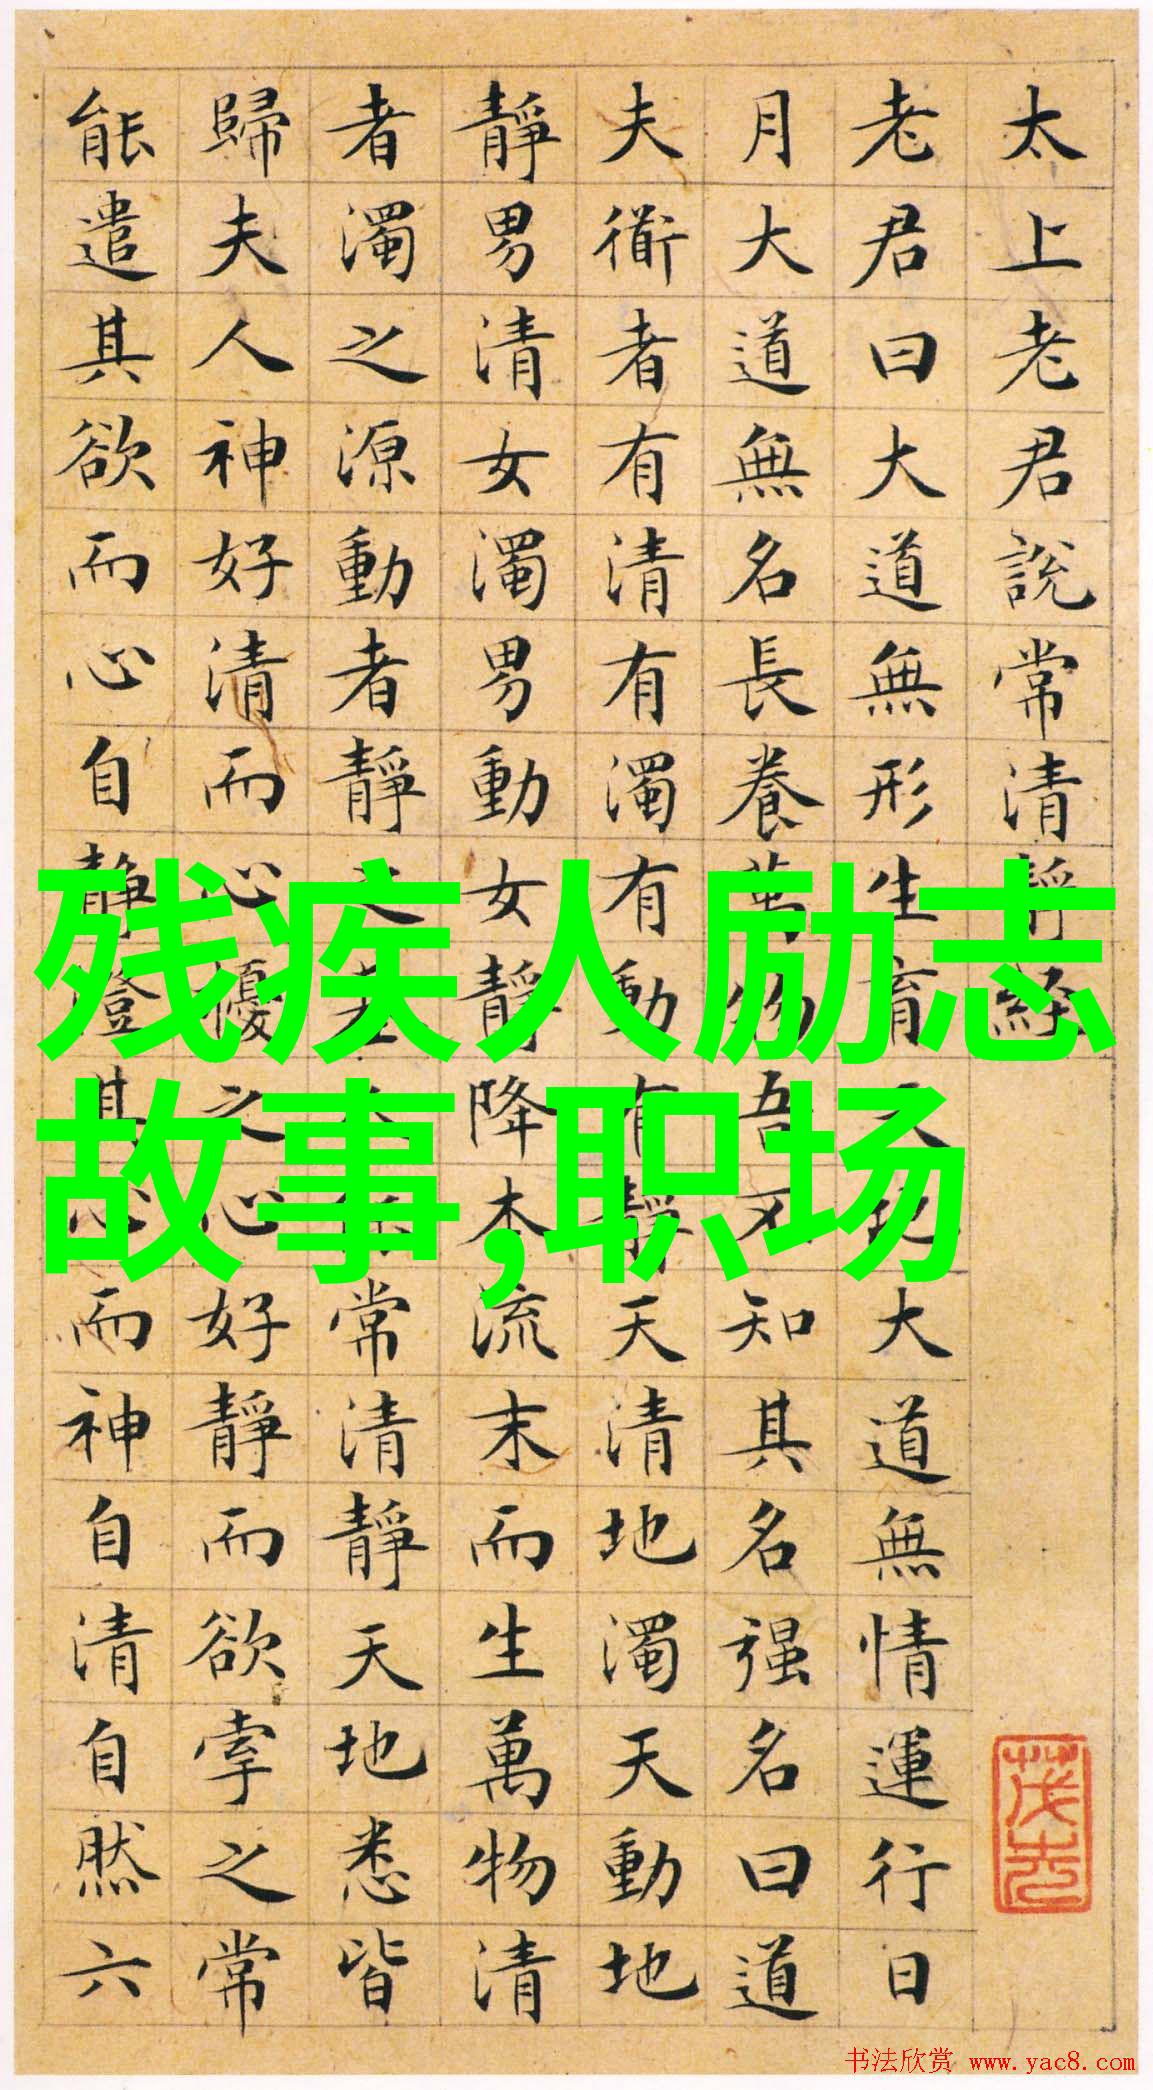 太上老君說常清靜經
老君曰大道無形生育天地大道無情運行日
月大道無名長養萬物吾不知其名强名曰道
夫衜者有清有濁有動有靜天清地濁天動地
靜男清女濁男動女靜降本流末而生萬物清
者濁之源動者靜之基人能常清靜天地悉皆
歸夫人神好清而心擾之心好靜而欲牽之常
能遣其欲而心自靜澄其心而神自清自然六
残疾人励志
故事,职场
书法欣赏 www.yac8.com